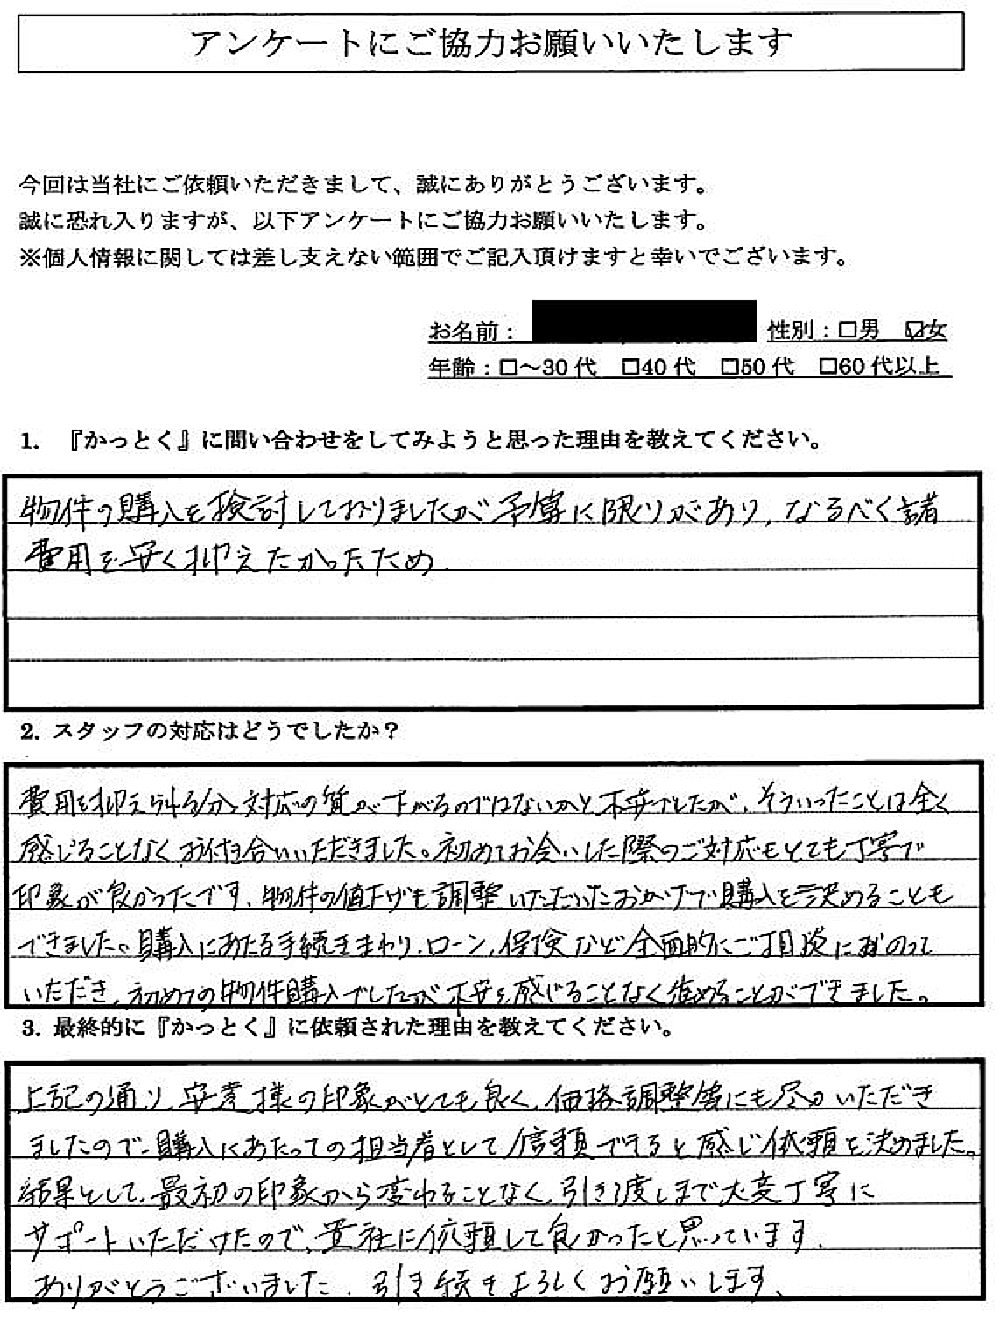 アンケートにご協力お願いいたします
今回は当社にご依頼いただきまして、誠にありがとうございます。
誠に恐れ入りますが、以下アンケートにご協力お願いいたします。
※個人情報に関しては差し支えない範囲でご記入頂けますと幸いでございます。
お名前： 性別：□男 ☑女
年齢：□～30代 □40代 □50代 □60代以上
1. 『かっとく』に問い合わせをしてみようと思った理由を教えてください。
物件の購入を検討しておりましたが予算に限りがあり、なるべく諸
費用を安く抑えたかったため
2. スタッフの対応はどうでしたか？
費用を抑えられる分、対応の質が下がるのではないかと不安でしたが、そういったことは全く
感じることなくお付き合いいただきました。初めてお会いした際のご対応もとても丁寧で
印象が良かったです。物件の値下げも調整いただいたおかげで購入を決めることも
できました。購入にあたる手続きまわり、ローン、保険など全面的にご相談にものって
いただき、初めての物件購入でしたが不安を感じることなく進めることができました。
3. 最終的に『かっとく』に依頼された理由を教えてください。
上記の通り、安斎様の印象がとても良く、価格調整等にも尽力いただき
ましたので、購入にあたっての担当者として信頼できると感じ依頼を決めました。
結果として、最初の印象から変わることなく、引き渡しまで大変丁寧に
サポートいただけたので、貴社に依頼して良かったと思っています。
ありがとうございました。引き続きよろしくお願いします。